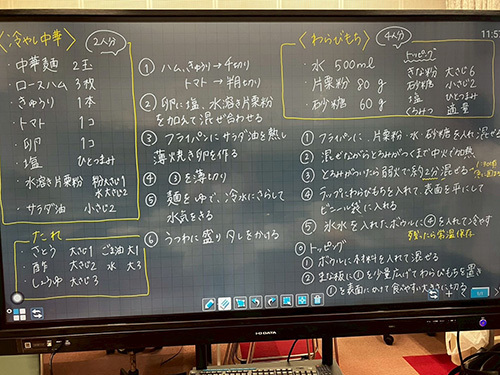 〈冷やし中華〉 2人分
・中華麺 2玉
・ロースハム 3枚
・きゅうり 1本
・トマト 1コ
・卵 1コ
・塩 ひとつまみ
・水溶き片栗粉 粉大さじ1
水大さじ2
・サラダ油 小さじ2
たれ
・さとう 大さじ1 ごま油 大1
・酢 大さじ2 水 大3
・しょうゆ 大さじ3
① ハム、きゅうり→千切り
トマト → 半月切り
② 卵に塩、水溶き片栗粉
を加えて混ぜ合わせる
③ フライパンにサラダ油を熱し
薄焼き卵を作る
④ ③を薄切り
⑤ 麺をゆで、冷水にさらして
水気をきる
⑥ うつわに盛りタレをかける
11:57
〈わらびもち〉 4人分
・水 500ml
・片栗粉 80g
・砂糖 60g
トッピング
きな粉 大さじ6
砂糖 小さじ2
塩 ひとつまみ
くろみつ 適量
① フライパンに、片栗粉・水・砂糖を入れ混ぜる
② 混ぜながらとろみがつくまで中火で加熱
③ とろみがついたら弱火で練り2分混ぜる
④ ラップにわらびもちを入れて、表面を平にして
ビニール袋に入れる
⑤ 氷水を入れたボウルに④を入れて冷やす
常温保存
◎ トッピング
① ボウルに材料を入れて混ぜる
② まな板に①を少量広げてわらびもちを置き
①を表面にのせて食べやすい大きさに切る
I-O DATA